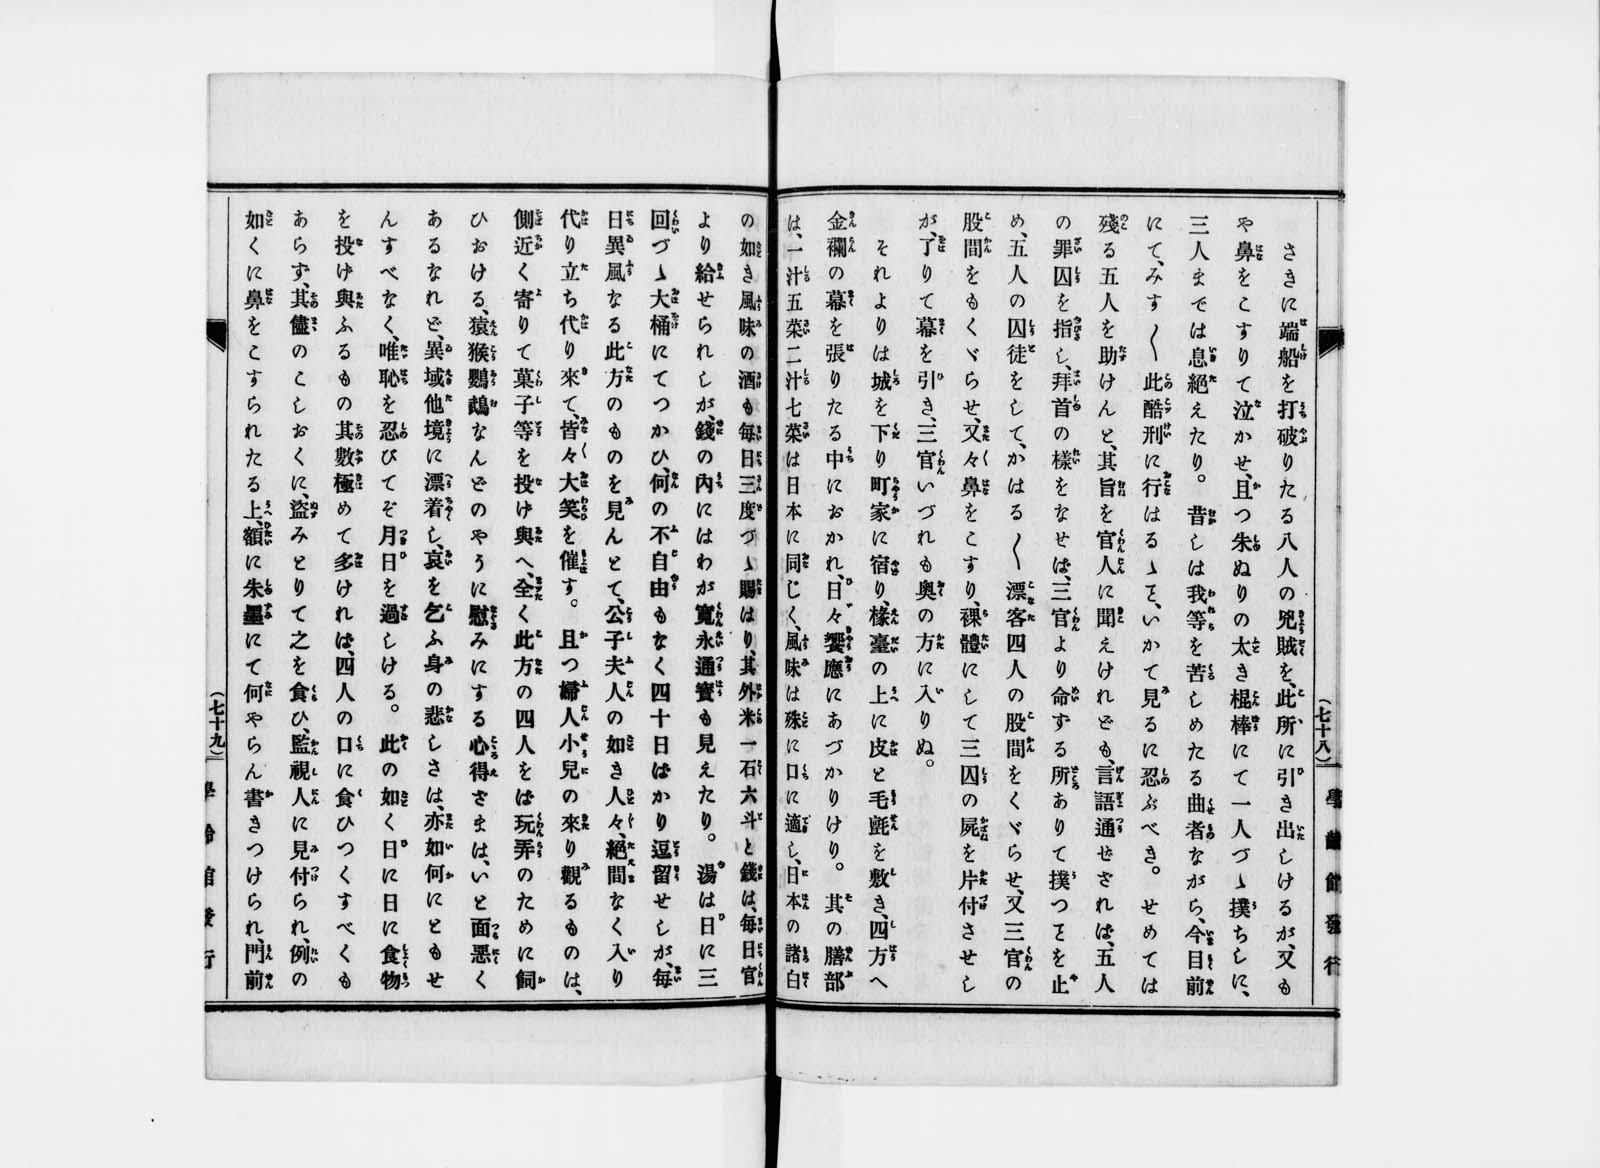 さきに端船を打破りたる八人の兇賊を、此所に引き出しけるが、又も
や鼻をこすりて泣かせ、且つ朱ぬりの太き棍棒にて一人づゝ撲ちしに、
三人までは息絶えたり。昔しは我等を苦しめたる曲者ながら、今目前
にて、みす〳〵此酷刑に行はるゝを、いかで見るに忍ぶべき。せめては
殘る五人を助けんと、其旨を官人に聞えけれども、言語通ぜざれば、五人
の罪囚を指し、拜首の樣をなせば、三官より命ずる所ありて撲つことを止
め、五人の囚徒をして、かはる〳〵漂客四人の股間をくゞらせ、又三官の
股間をもくゞらせ、又々鼻をこすり、裸體にして三囚の屍を片付させし
が、了りて幕を引き、三官いづれも奧の方に入りぬ。
それよりは城を下り町家に宿り、椽臺の上に皮と毛氈を敷き、四方へ
金襴の幕を張りたる中におかれ、日々饗應にあづかりけり。其の膳部
は、一汁五菜二汁七菜は日本に同じく、風味は殊に口に適し、日本の諸白
(七十八) 學齡館發行
の如き風味の酒も毎日三度づゝ賜はり、其外米一石六斗と錢は、毎日官
より給せられしが、錢の內にはわが寬永通寳も見えたり。湯は日に三
回づゝ大桶にてつかひ、何の不自由もなく四十日ばかり逗留せしが、每
日異風なる此方のものを見んとて、公子夫人の如き人々、絕間なく入り
代り立ち代り來て、皆々大笑を催す。且つ婦人小兒の來り觀るものは、
側近く寄りて菓子等を投げ與へ、全く此方の四人をば玩弄のために飼
ひおける、猿猴鸚鵡なんどのやうに慰みにする心得ざまは、いと面惡く
あるなれど、異域他境に漂着し、哀を乞ふ身の悲しさは、亦如何にともせ
んすべなく、唯恥を忍びてぞ月日を過しける。此の如く日に日に食物
を投げ與ふるもの其數極めて多ければ、四人の口に食ひつくすべくも
あらず、其儘のこしおくに、盜みとりて之を食ひ、監視人に見付られ、例の
如くに鼻をこすられたる上、額に朱墨にて何やらん書きつけられ、門前
(七十九) 學齡館發行